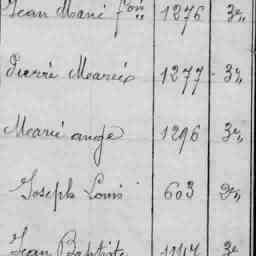 Jean Marie fois 1276 3e
Pierre Marie 1277 3e
Marie ange 1296 3e
Joseph Louis 603 2e
Jean Baptiste